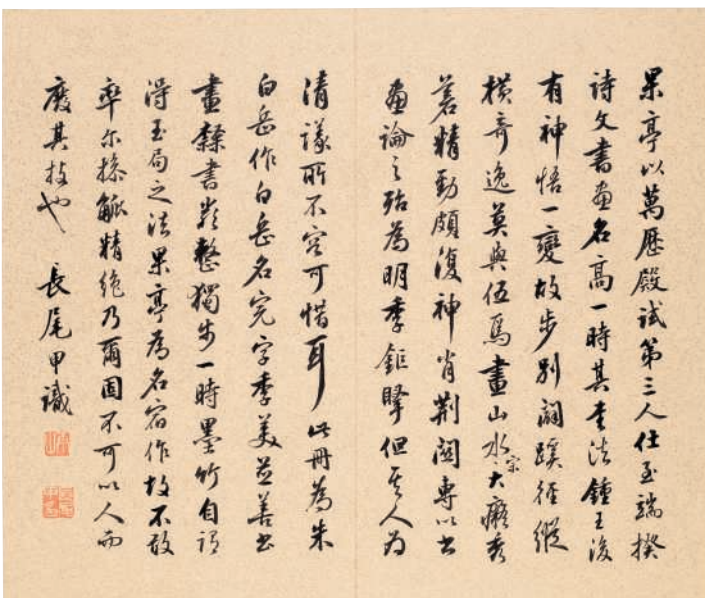 果亭以萬歷殿試第三人仕至端揆
詩文書畫名高一時其書法鍾王後
有神悟一變故步別闢蹊徑縱
橫奇逸莫與伍焉畫山水宗大癡秀
蒼精勁頗復神肖荊關專以書
畫論之殆為明季鉅擘但其人為
清議所不容可惜耳此冊為朱
白岳作白岳名完字季美並善書
畫隸書嚴整獨步一時墨竹自謂
得玉局之法果亭為名宿作故不敢
率尔操觚精絕乃爾固不可以人而
廢其技也 長尾甲識